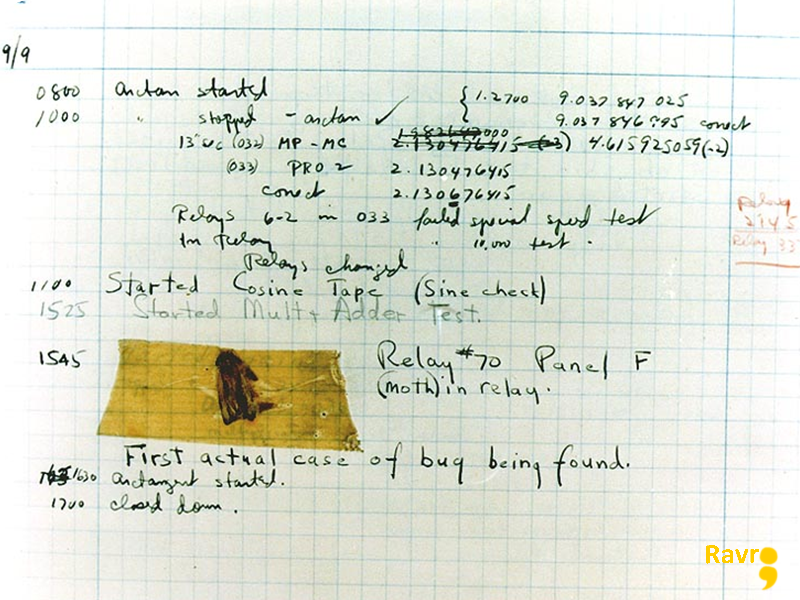 9/9
0800 arctan started { 1.2700 9.037 847 025
1000 " stopped - arctan ✓ 9.037 846 995 correct
13" sec (032) MP - MC 2.130476415 (-3) 4.615925059(-2)
(033) PRO 2 2.130476415
correct 2.130676415
Relays 6-2 in 033 failed special speed test
In Relay " 10,000 test .
Relays changed
Relay
2145
Relay 337
1100 Started Cosine Tape (Sine check)
1525 Started Mult + Adder Test.
1545 Relay #70 Panel F
(moth) in relay.
First actual case of bug being found.
1630 arctangent started.
1700 closed down.
Ravro